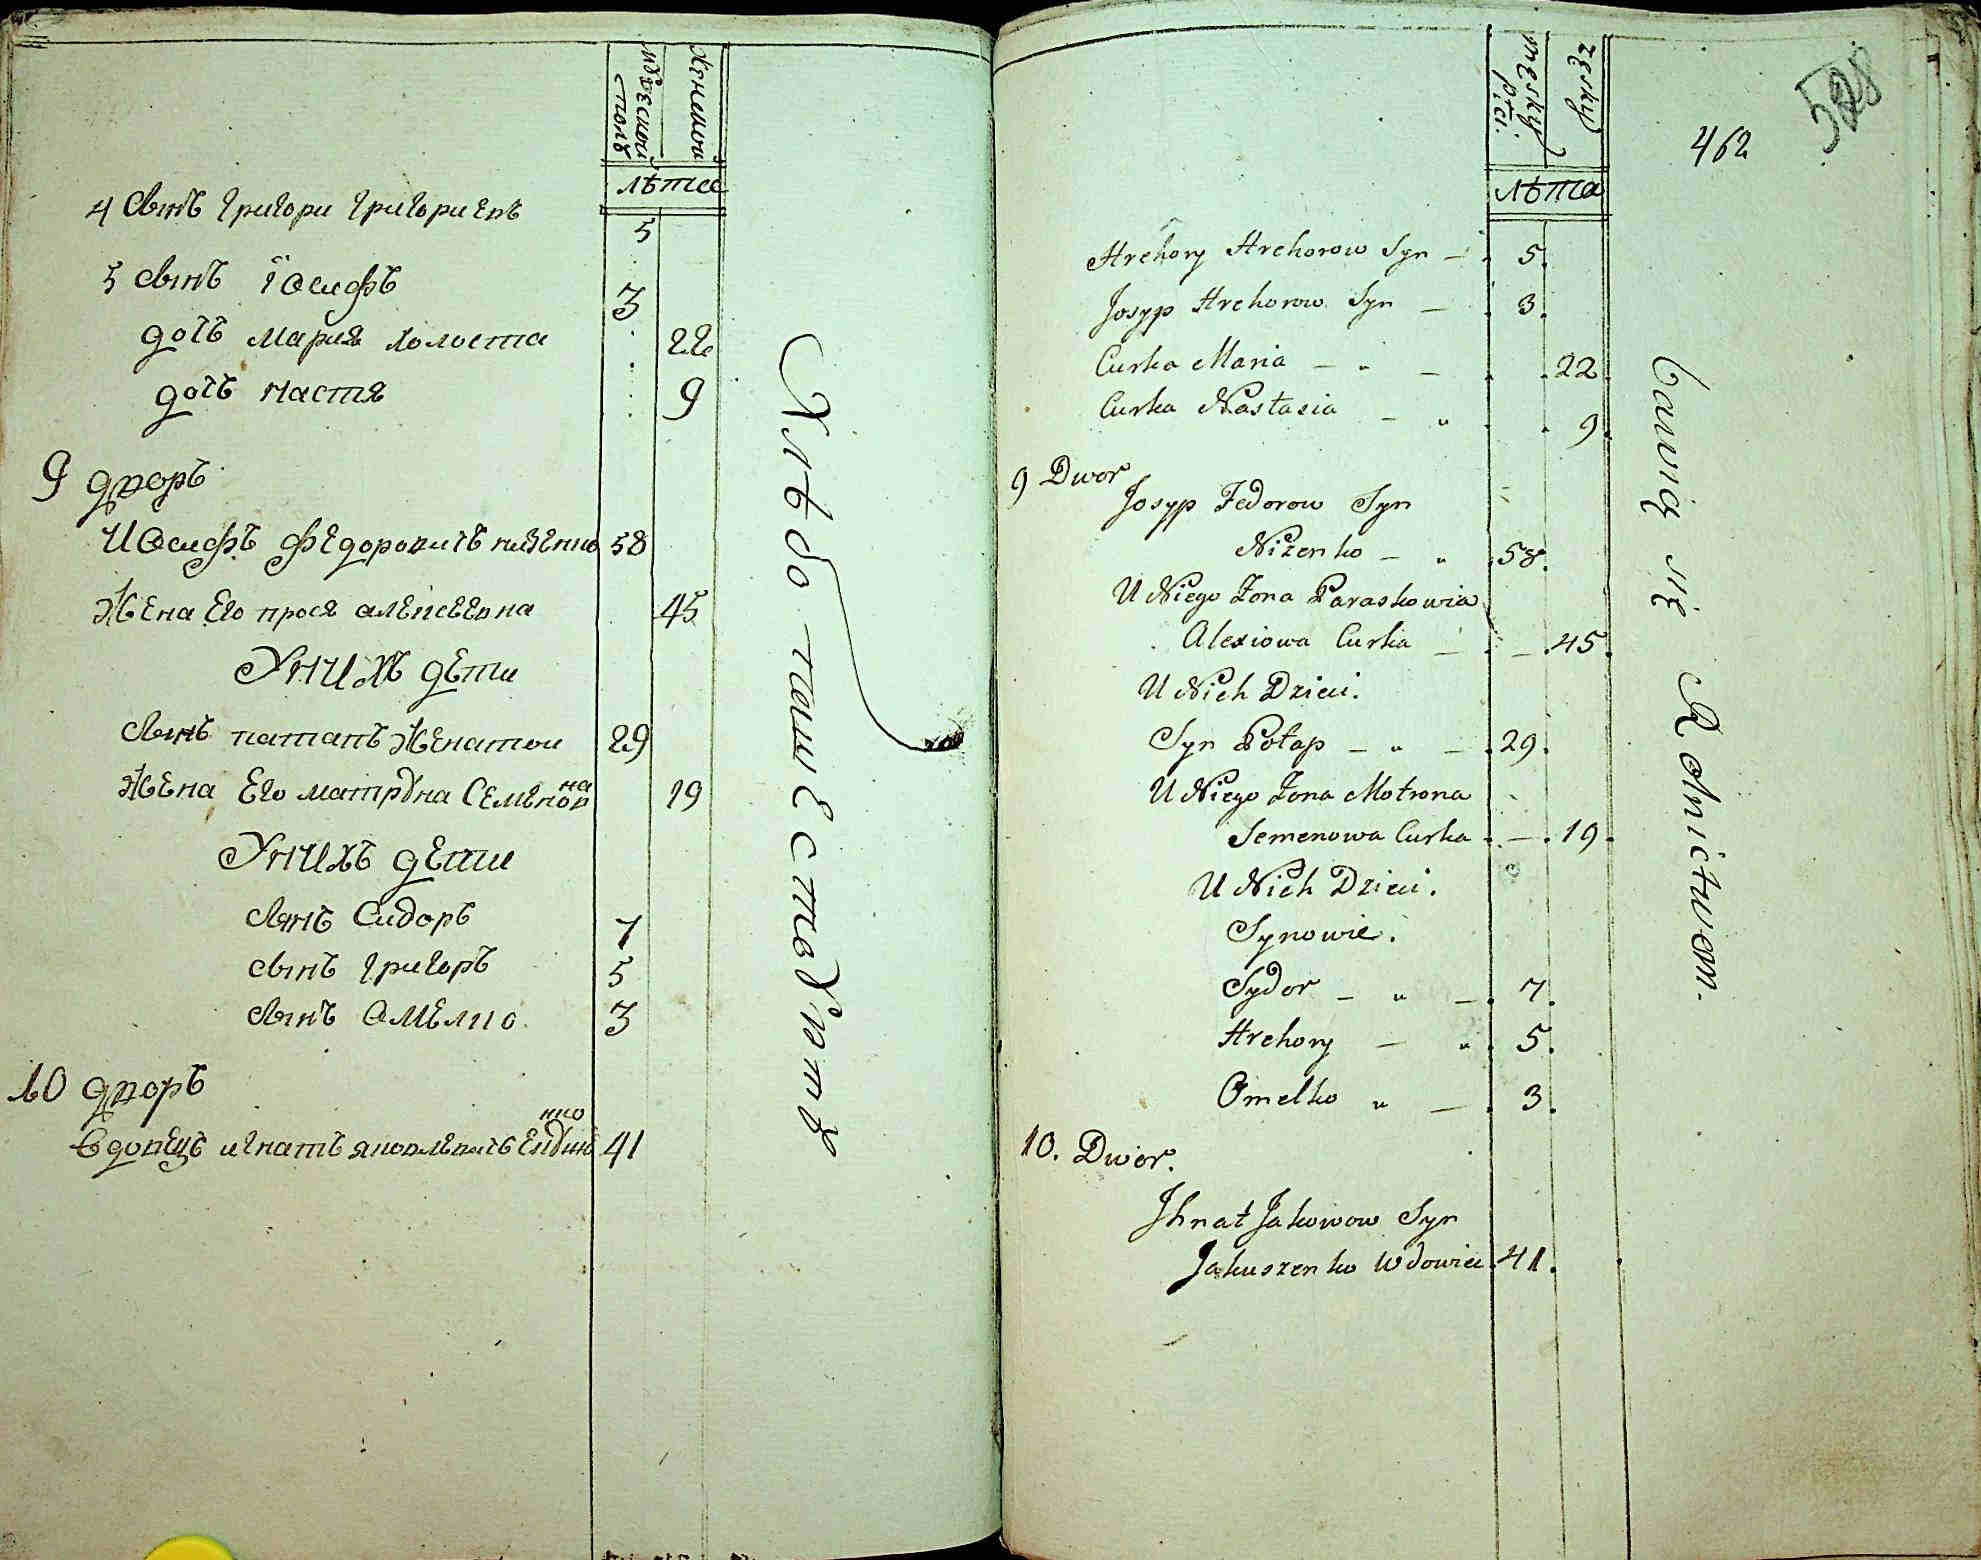 мужеской
полъ
женской
лѣта
4 Сынъ григори григориевъ 5
5 Сынъ іосифъ 3
дочь мария холоста 22
дочь настя 9
9 дворъ
Иосифъ федоровичъ низенко 58
Жена Его прося алексеевна 45
У нихъ дети
Сынъ патапъ женатои 29
Жена Его матруна Семеновна 19
У нихъ дети
Сынъ Сидоръ 7
Сынъ григоръ 5
Сынъ Омелко 3
10 дворъ
вдовецъ игнатъ яковлевичъ 41
Хлѣбо пашествуютъ
męskiy
płci.
żęskiy
лѣта
462
528
Hrehory Hrehorow Syn — 5.
Josyp Hrehorow Syn — 3.
Curka Maria — " — 22
Curka Nastasia — " 9.
9 Dwor
Josyp Fedorow Syn
Nizenko — " 58.
U Niego Żona Paraskowia
Alexiowa Curka — 45.
U Nich Dzieci.
Syn Potap — " — 29.
U Niego Żona Motrona
Semenowa Curka — 19.
U Nich Dzieci.
Synowie.
Sydor — " — 7.
Hrehory — " 5.
Omelko " — 3.
10. Dwor.
Jhnat Jakowow Syn
Jakuszenko Wdowiec 41.
bawią się Rolnictwem.